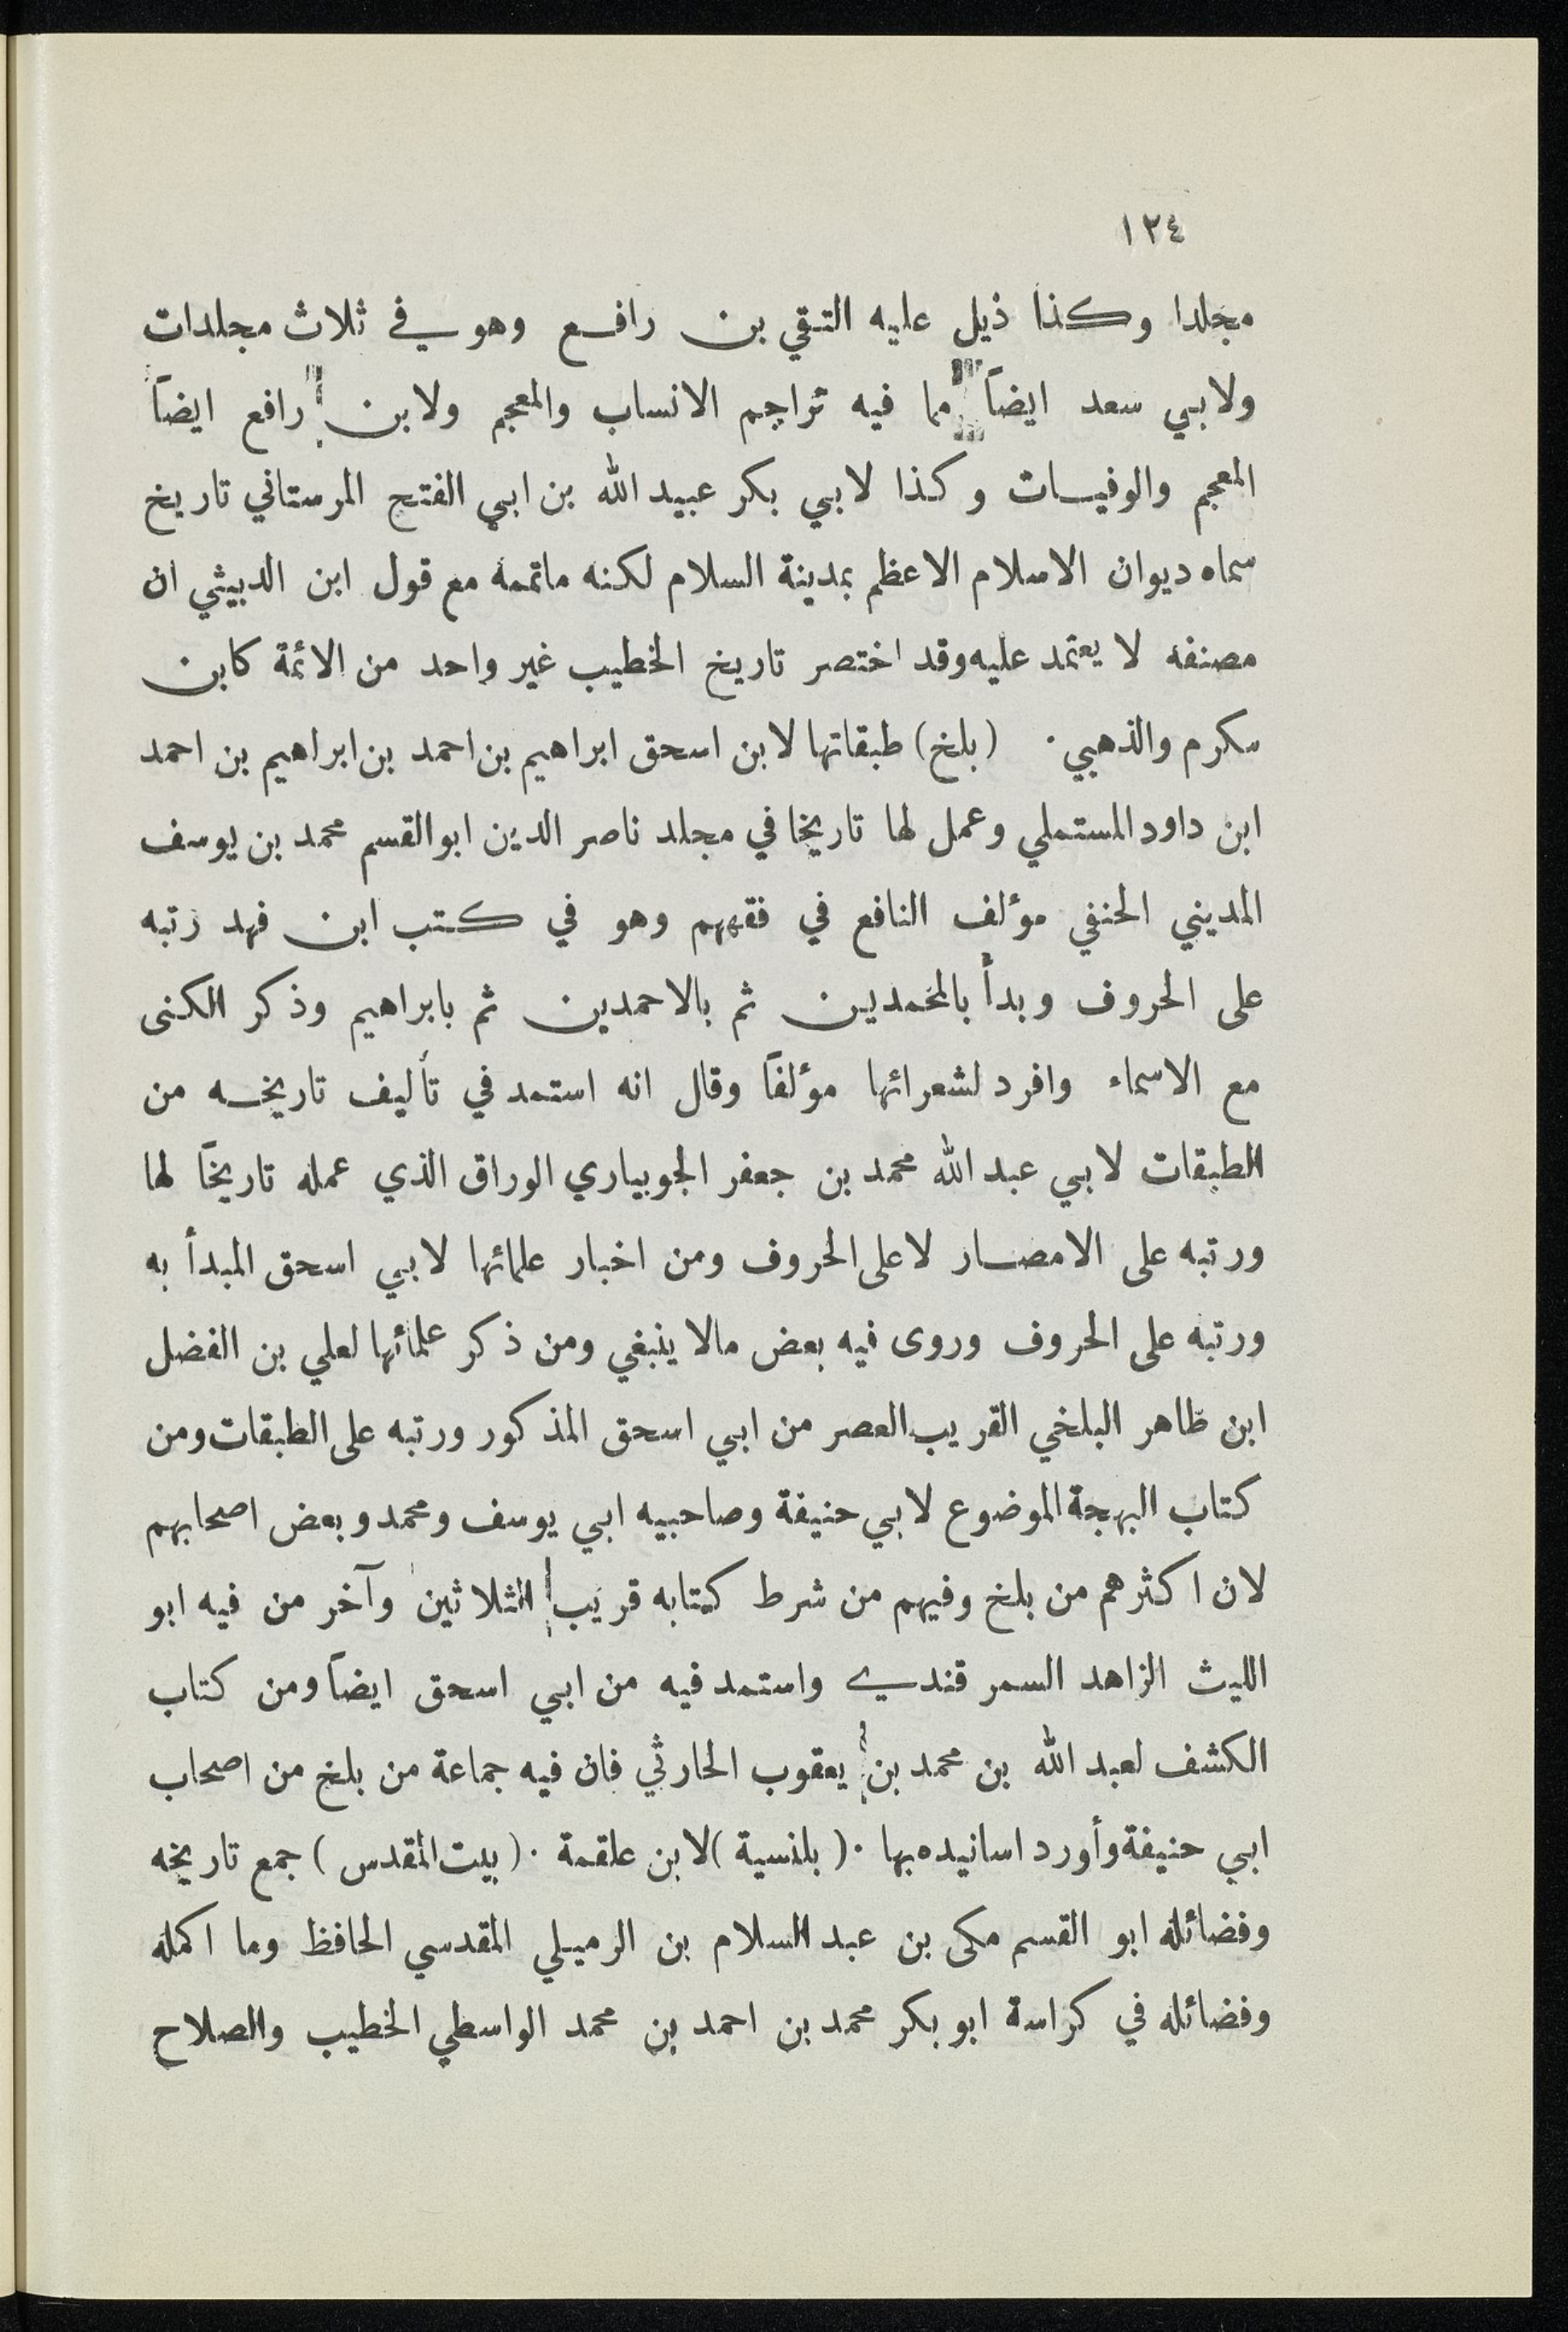 ١٢٤
مجلدا وكذا ذيل عليه التقي بن رافع وهو في ثلاث مجلدات
ولابي سعد ايضاً مما فيه تراجم الانساب والمعجم ولابن رافع ايضاً
المعجم والوفيات وكذا لابي بكر عبيد الله بن ابي الفتح المرستاني تاريخ
سماه ديوان الاسلام الاعظم بمدينة السلام لكنه ماتممه مع قول ابن الدبيثي ان
مصنفه لا يعتمد عليه وقد اختصر تاريخ الخطيب غير واحد من الائمة كابن
مكرم والذهبي · (بلخ) طبقاتها لابن اسحق ابراهيم بن احمد بن ابراهيم بن احمد
ابن داود المستملي وعمل لها تاريخا في مجلد ناصر الدين ابو القسم محمد بن يوسف
المديني الحنفي مؤلف النافع في فقههم وهو في كتب ابن فهد رتبه
على الحروف وبدأ بالمحمدين ثم بالاحمدين ثم بابراهيم وذكر الكنى
مع الاسماء وافرد لشعرائها مؤلفاً وقال انه استمد في تأليف تاريخه من
الطبقات لابي عبد الله محمد بن جعفر الجويباري الوراق الذي عمله تاريخاً لها
ورتبه على الامصار لا على الحروف ومن اخبار علمائها لابي اسحق المبدأ به
ورتبه على الحروف وروى فيه بعض مالا ينبغي ومن ذكر علمائها لعلي بن الفضل
ابن طاهر البلخي القريب العصر من ابي اسحق المذكور ورتبه على الطبقات ومن
كتاب البهجة الموضوع لابي حنيفة وصاحبيه ابي يوسف ومحمد وبعض اصحابهم
لان اكثرهم من بلخ وفيهم من شرط كتابه قريب الثلاثين وآخر من فيه ابو
الليث الزاهد السمرقندي واستمد فيه من ابي اسحق ايضاً ومن كتاب
الكشف لعبد الله بن محمد بن يعقوب الحارثي فان فيه جماعة من بلخ من اصحاب
ابي حنيفة وأورد اسانيده بها · ( بلنسية ) لابن علقمة · ( بيت المقدس ) جمع تاريخه
وفضائله ابو القسم مكى بن عبد السلام بن الرميلي المقدسي الحافظ وما اكمله
وفضائله في كراسة ابو بكر محمد بن احمد بن محمد الواسطي الخطيب والصلاح